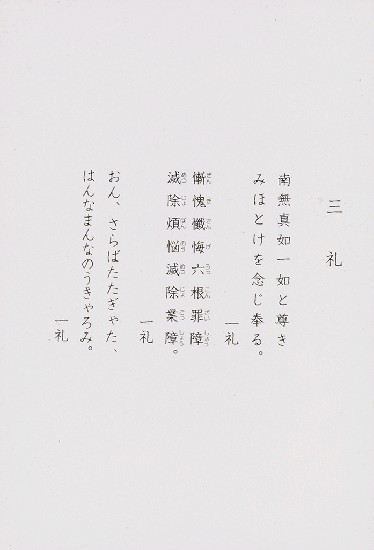 三礼
南無真如一如と尊き
みほとけを念じ奉る。
一礼
慚愧懺悔六根罪障
滅除煩悩滅除業障。
一礼
おん、さらばたたぎゃた、
はんなまんなのうきゃろみ。
一礼